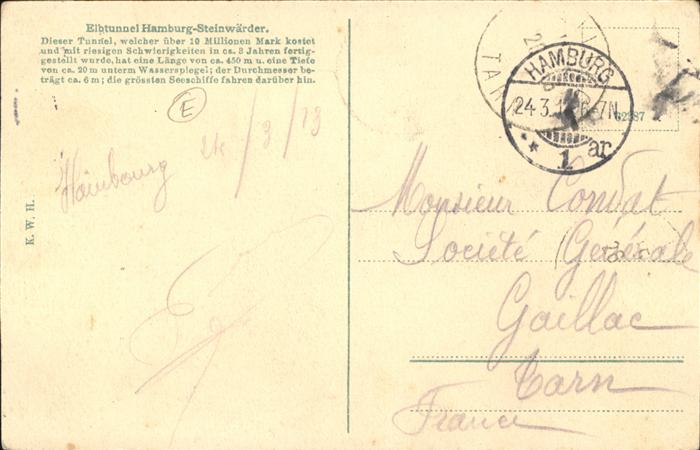 Elbtunnel Hamburg-Steinwärder.
Dieser Tunnel, welcher über 10 Millionen Mark kostet
und mit riesigen Schwierigkeiten in ca. 3 Jahren fertig-
gestellt wurde, hat eine Länge von ca. 450 m u. eine Tiefe
von ca. 20 m unterm Wasserspiegel; der Durchmesser be-
trägt ca. 6 m; die grössten Seeschiffe fahren darüber hin.
E
Hambourg 24/3/13
K. W. H.
TARN
HAMBURG
24.3.1 6-7N
* 1 ar
Monsieur
Société Générale
Gaillac
Tarn
France